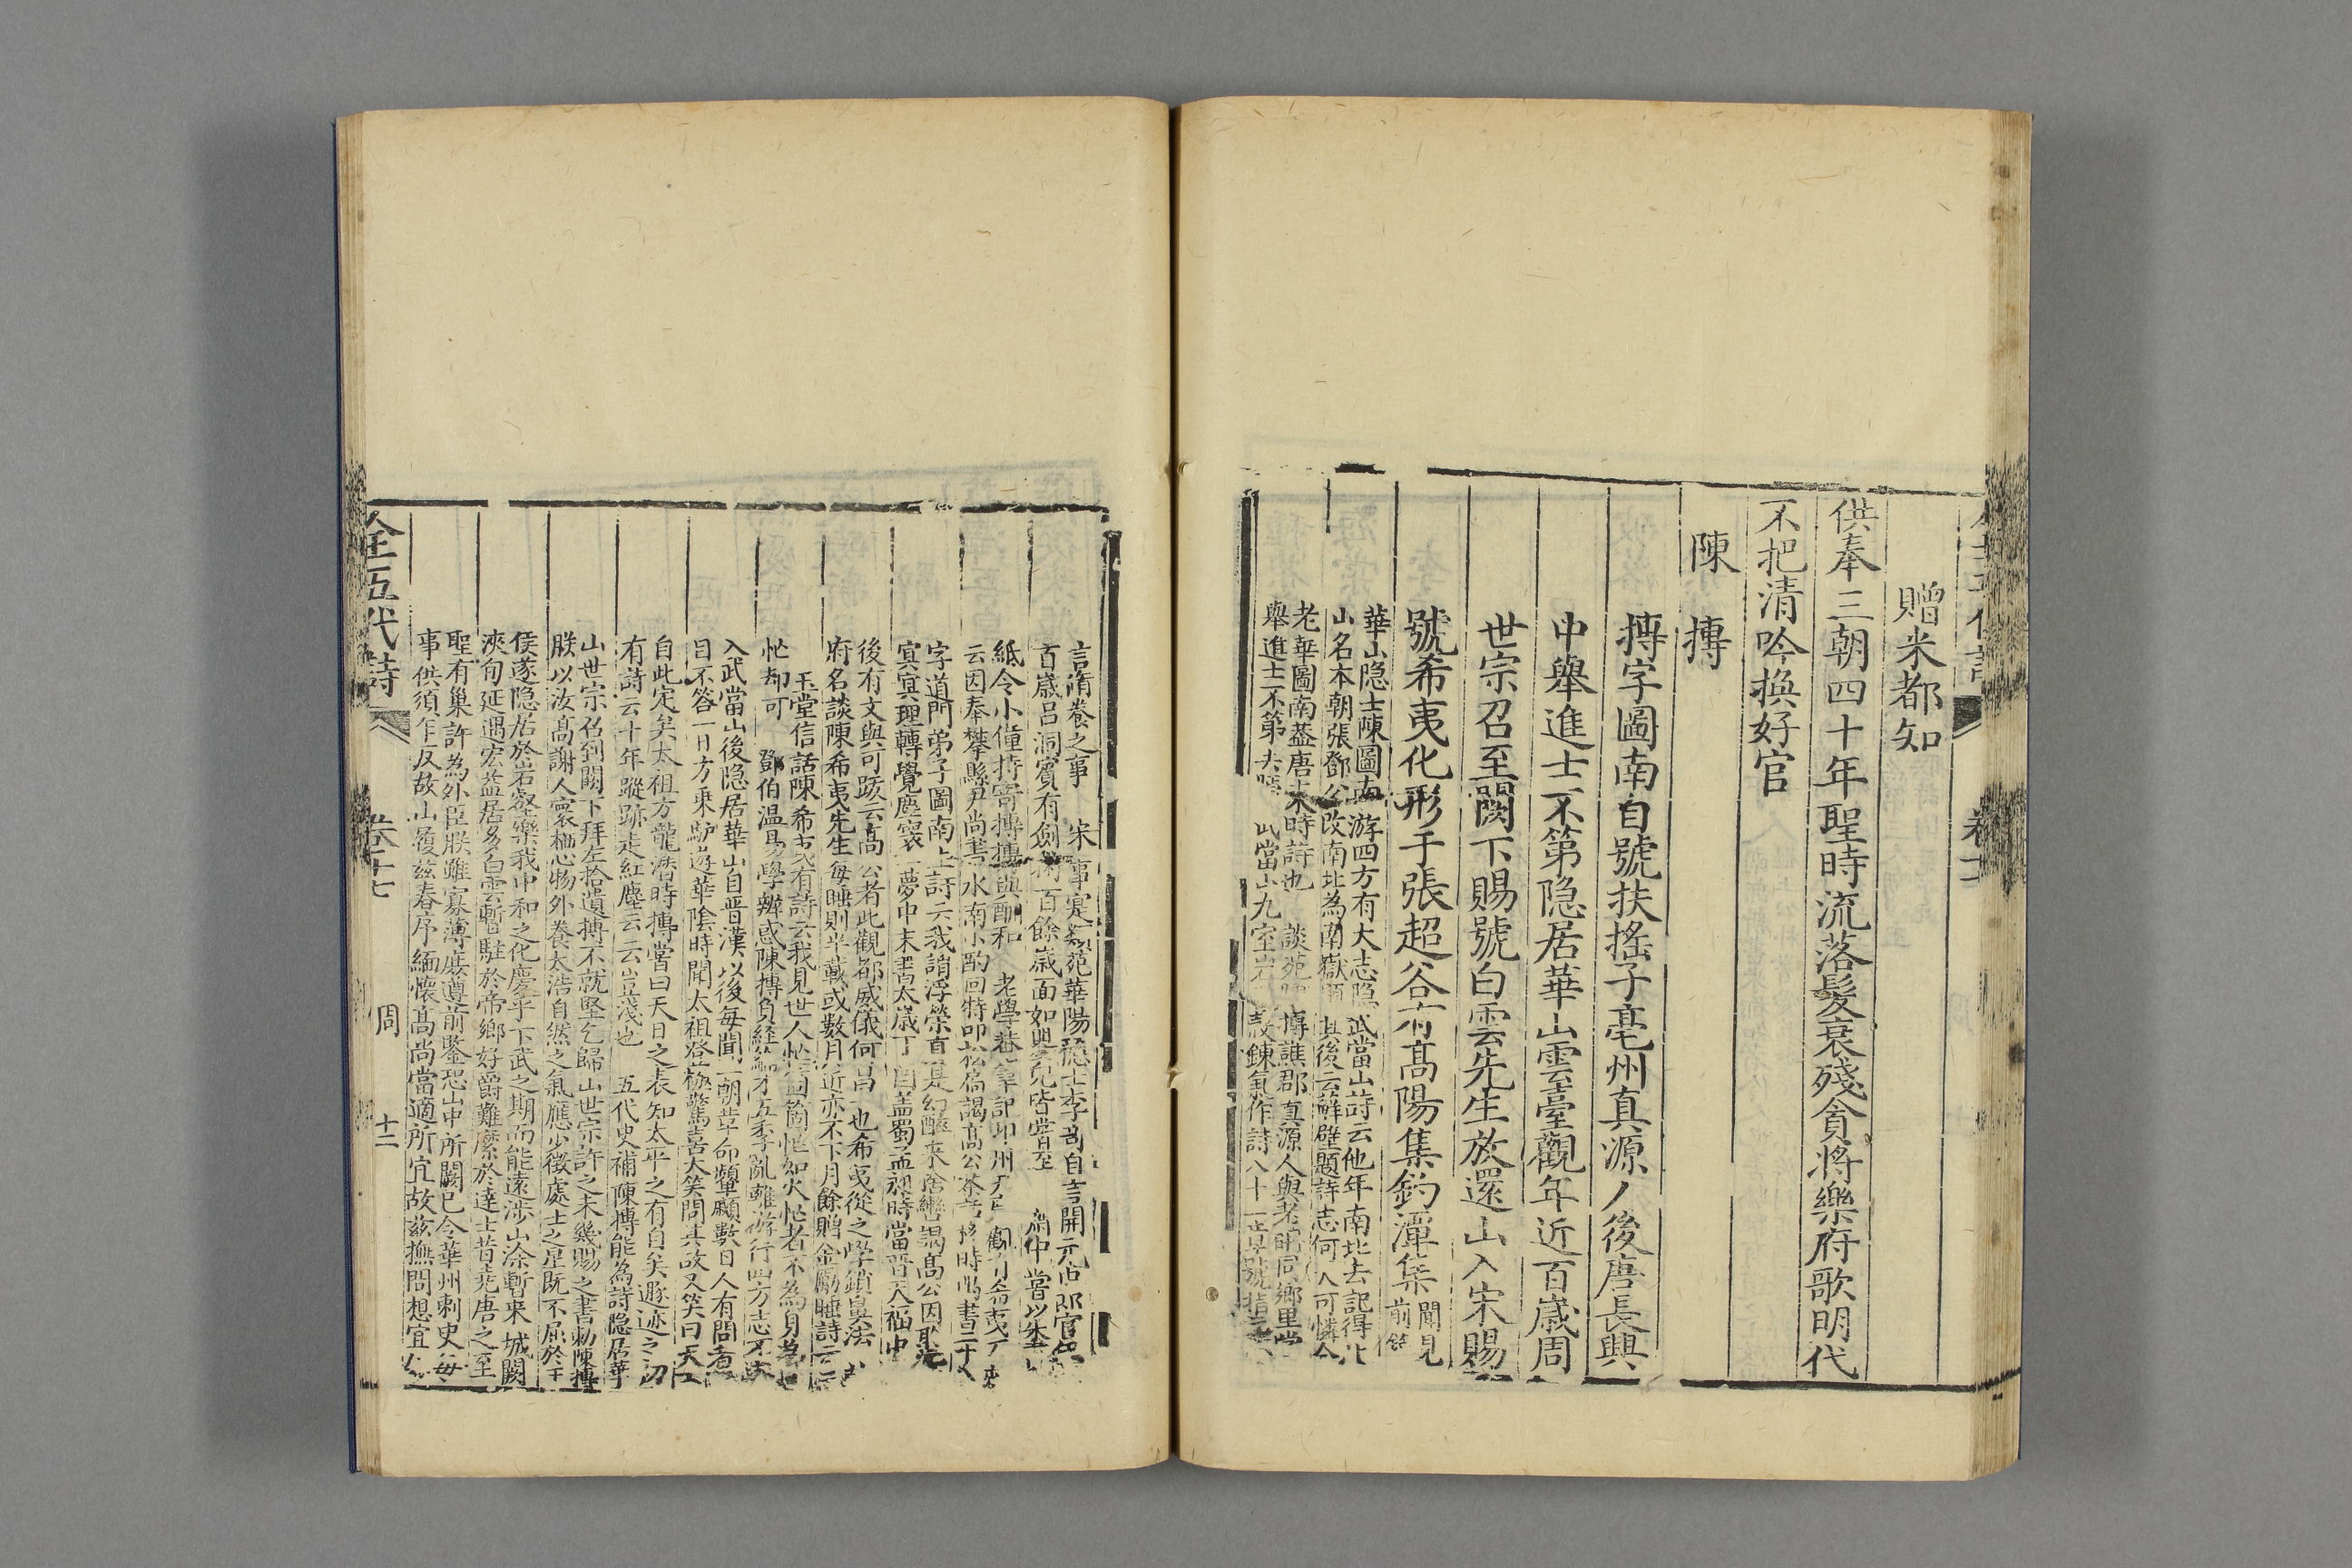 贈米都知
供奉三朝四十年聖時流落髮衰殘貪將樂府歌明代
不把清吟換好官
陳摶
摶字圖南自號扶搖子亳州真源人後唐長興
中舉進士不第隱居華山雲臺觀年近百歲周
世宗召至闕下賜號白雲先生放還山入宋賜
號希夷化形于張超谷有高陽集釣潭集
聞見
前錄
華山隱士陳圖南游四方有大志隱武當山詩云他年南北去記得北
山名本朝張鄧公改南北為南嶽題其後云蘚壁題詩志何人可憐今
老華圖南蓋唐末時詩也 談苑 摶譙郡真源人與老聃同鄉里嘗
舉進士不第去 武當山九室岩 鍊氣作詩八十一章號指
言脩養之事 宋事寔類苑華陽隱士李 自言開元 郎官
百歲呂洞賓有劍術百餘歲面如嬰兒皆嘗至 中嘗以
紙令小僮持寄摶摶與酬和 老學菴筆記卭州 觀有希夷
云因奉攀縣尹尚書水南小酌回特叩松扃謁高公茶 移時 書二十
字道門弟子圖南上詩云我謂浮榮真是幻醉來捨轡謁高公因聆
冥冥理轉覺塵寰一夢中末書太歲丁酉蓋蜀孟昶時當晉天福中
後有文與可跋云高公者此觀都威儀何昌一也希夷從之學鎖鼻法
府名談陳希夷先生每睡則半載或數月近亦不下月餘贈金勵睡詩云
玉堂信話陳希夷有詩云我見世人忙箇箇忙如火忙者不為身為
忙却可 鄧伯温易學辨惑陳摶負經綸才五季亂離游行四方志不遂
入武當山後隱居華山自晉漢以後每聞一朝革命顰蹙數日人有問者
目不答一日方乘驢遊華陰時聞太祖登極驚喜大笑問其故又笑曰天
自此定矣太祖方龍潛時摶嘗曰天日之表知太平之有自矣遯迹之初
有詩云十年蹤跡走紅塵云云豈淺也 五代史補陳摶能為詩隱居華
山世宗召到闕下拜左拾遺摶不就堅乞歸山世宗許之未幾賜之書勅陳摶
朕以汝高謝人寰栖心物外養太浩自然之氣應少微處士之星既不屈於王
侯遂隱居於岩壑樂我中和之化慶乎下武之期而能遠涉山凃暫來城闕
浹旬延遇宏益居多白雲暫駐於帝鄉好爵難縻於達士昔堯唐之至
聖有巢許為外臣朕雖寡薄庶遵前鑒恐山中所闕已令華州刺史每
事供須乍反故山履茲春序緬懷高尚當適所宜故茲撫問想宜
全五代詩 卷七十七 周 十二